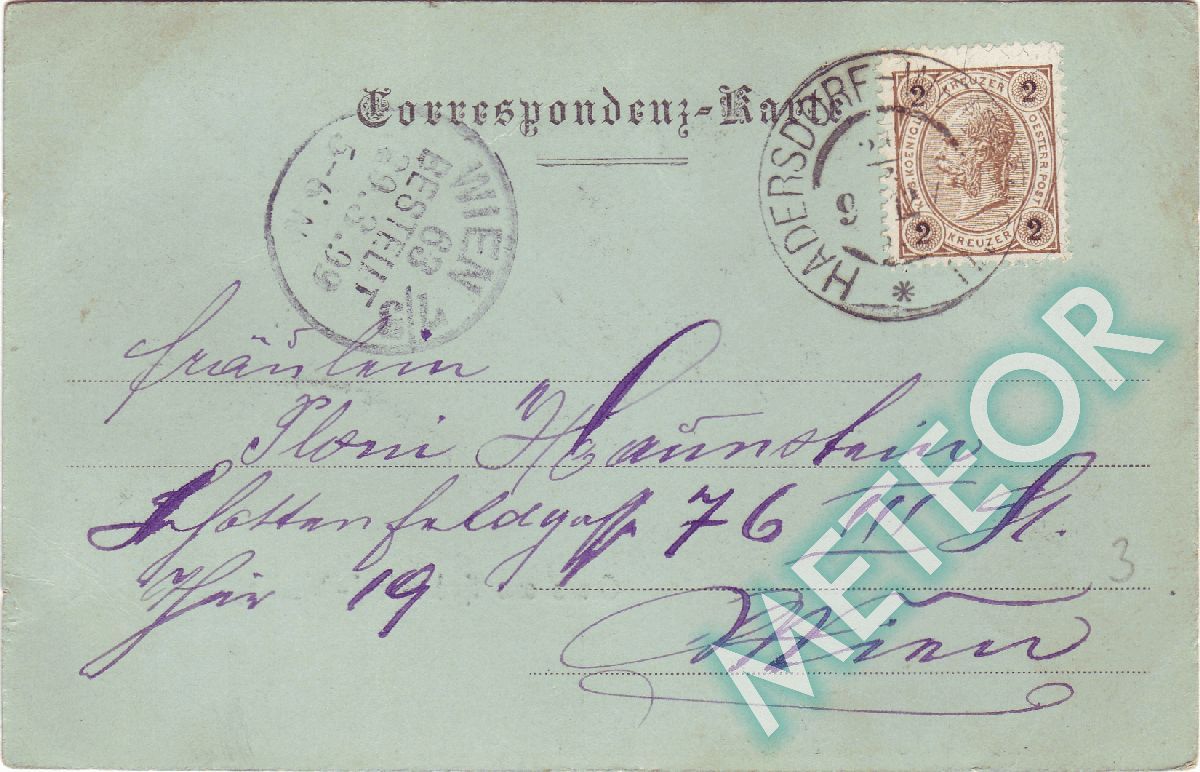 Correspondenz-Karte
WIEN 1/3
63
BESTELLT
29.3.99
HADERSDORF
*
9
2 KREUZER 2
OESTERR. POST.
2 KREUZER 2
Fräulein
Haunstein
Schottenfeldgasse 76 II St.
Thür 19
Wien
3
METEOR